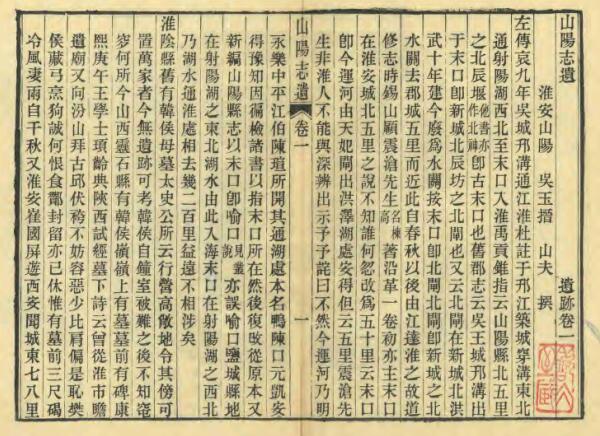 山陽志遺 遺跡卷一
淮安山陽 吳玉搢 山夫 撰
左傳哀九年吳城邗溝通江淮杜註于邗江築城穿溝東北
通射陽湖西北至末口入淮禹貢錐指云山陽縣北五里
之北辰堰他書亦作北神卽古末口也舊郡志云吳王城邗溝出
于末口卽新城北辰坊之北閘也又云北閘在新城北洪
武十年建今廢爲水關按末口卽北閘北閘卽新城之北
水關去郡城五里而近此自春秋以後由江達淮之故道
修志時錫山顧震滄先生名棟高著沿革一卷初亦主末口
在淮安城北五里之說不知誰何忽改爲五十里云末口
卽今運河由天妃閘出洪澤湖處安得但云五里震滄先
生非淮人不能與深辨出示予予詫曰不然今運河乃明
山陽志遺 卷一 一
永樂中平江伯陳瑄所開其通湖處本名鴨陳口元凱安
得豫知因徧檢諸書以指末口所在然後復改從原本又
新編山陽縣志以末口卽喻口見叢說亦誤喻口鹽城縣地
在射陽湖之東北湖水由此入海末口在射陽湖之西北
乃湖水通淮處相去幾二百里益遠不相涉矣
淮陰縣舊有韓侯母墓太史公所云行營高敞地令其傍可
置萬家者今無遺跡可考韓侯自鐘室被難之後不知窀
穸何所今山西靈石縣有韓侯嶺嶺上有墓墓前有碑康
熙庚午王學士頊齡典陝西試經墓下詩云曾從淮市瞻
遺廟又向汾山拜古邱伏袴不妨容惡少比肩偏是恥樊
侯藏弓烹狗誠何恨食封留亦已休惟有墓前三尺碣
冷風凄雨自千秋又淮安崔國屏遊西安聞城東七八里